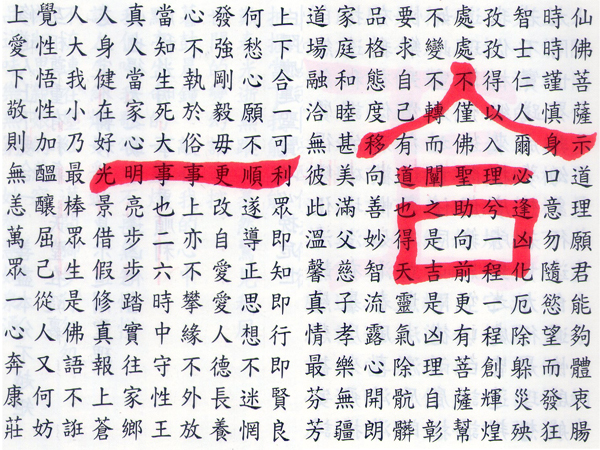 仙佛菩薩示道理願君能夠體衷腸
時時謹慎身口意勿隨慾望而發狂
智士仁人爾必逢凶化厄除躲災殃
孜孜得以入理兮一程一程創輝煌
處處不僅佛聖助向前更有菩薩幫
不變不轉而闡之是吉是凶理自彰
要求自己有道也得天靈氣除骯髒
品格態度移向善妙智流露心開朗
家庭和睦甚美滿父慈子孝樂無疆
道場融洽無彼此溫馨真情最芬芳
上下合一可利眾即知即行即賢良
何愁心願不順遂導正思想不迷惘
發強剛毅毋更改自愛愛人德長養
心不執於俗事上亦不攀緣人外放
當知生死大事也二六時中守性王
真人當家心明亮步步踏實往家鄉
人身健在好光景借假修真報上蒼
人大我小乃最棒眾生是佛語不誑
覺性悟性加醞釀屈己從人又何妨
上愛下敬則無恙萬眾一心奔康莊
合一